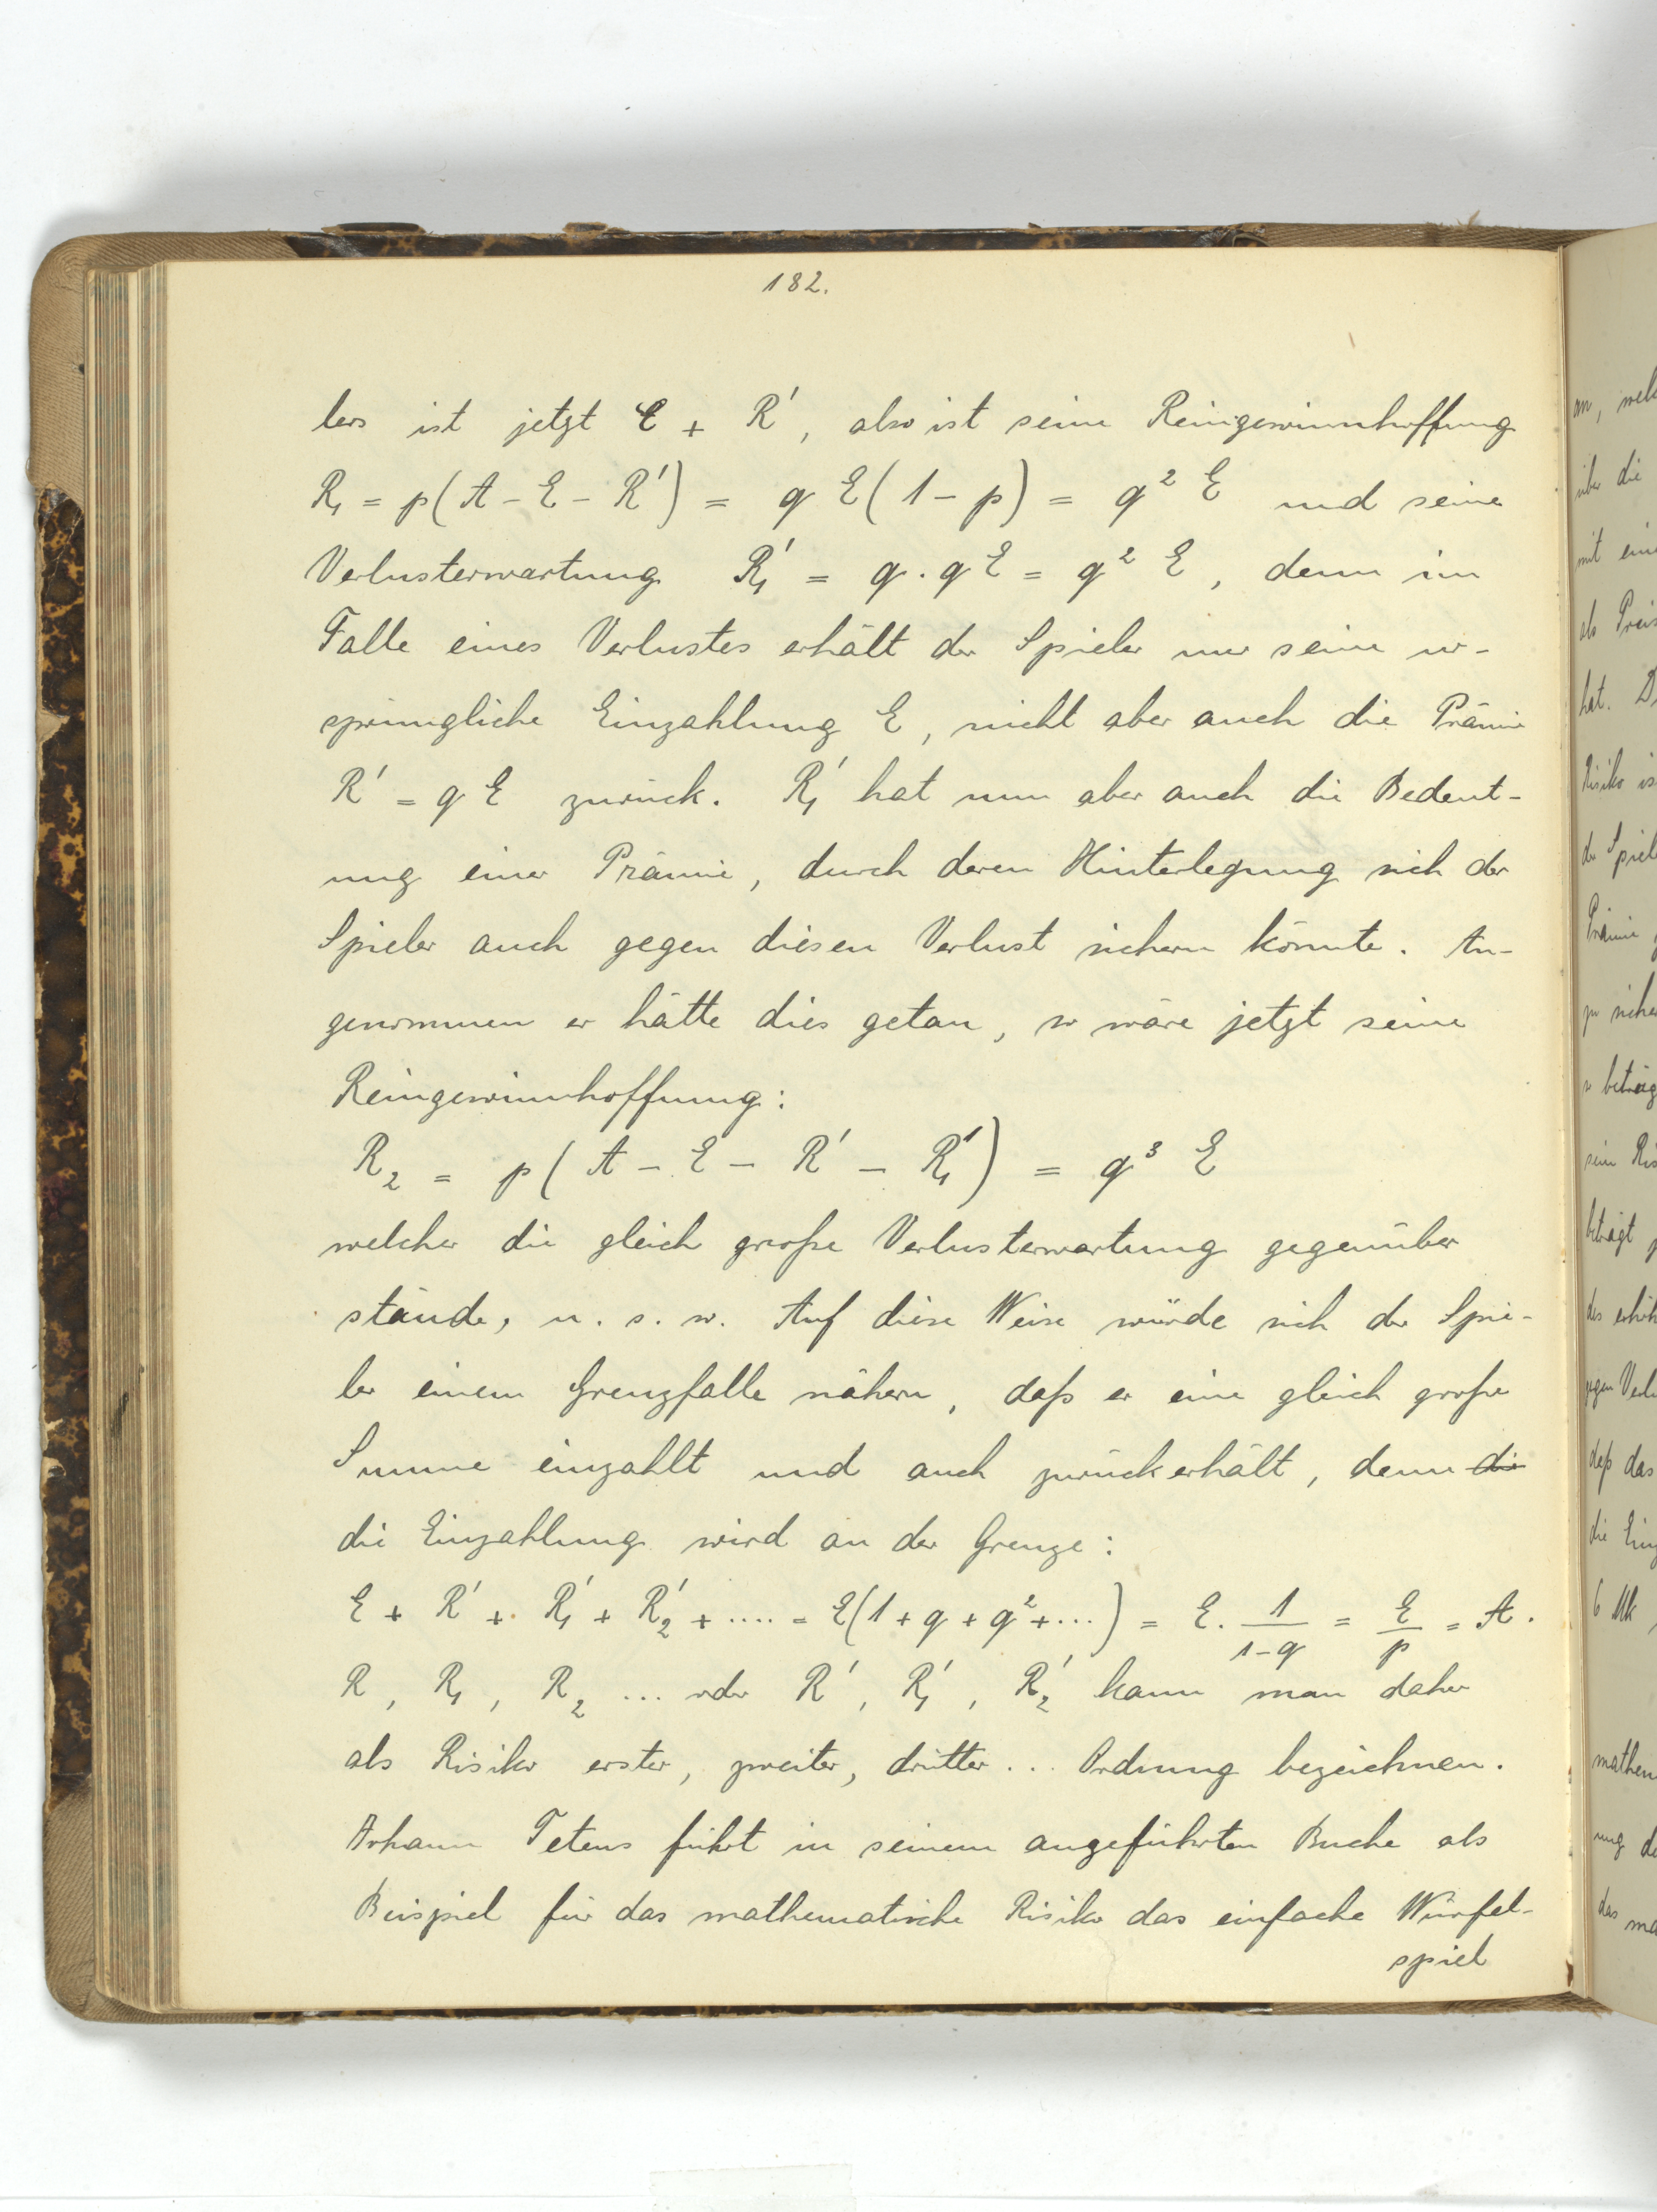 182.
lers ist jetzt E + R', also ist seine Reingewinnhoffung
R₁ = p(A - E - R') = q E(1 - p) = q² E und seine
Verlusterwartung R₁' = q . q E = q² E, denn im
Falle eines Verlustes erhält der Spieler nur seine ur-
sprüngliche Einzahlung E, nicht aber auch die Prämie
R' = q E zurück. R₁' hat nun aber auch die Bedeut-
ung einer Prämie, durch deren Hinterlegung sich der
Spieler auch gegen diesen Verlust sichern könnte. An-
genommen er hätte dies getan, so wäre jetzt seine
Reingewinnhoffnung:
R₂ = p(A - E - R' - R₁') = q³ E
welcher die gleich große Verlusterwartung gegenüber
stände, u. s. w. Auf diese Weise würde sich der Spie-
ler einem Grenzfalle nähern, daß er eine gleich große
Summe einzahlt und auch zurückerhält, denn die
die Einzahlung wird an der Grenze:
E + R' + R₁' + R₂' + .... = E(1 + q + q² + ...) = E . 1/(1-q) = E/p = A.
R, R₁, R₂ ... oder R', R₁', R₂' kann man daher
als Risiko erster, zweiter, dritter ... Ordnung bezeichnen.
Johann Tetens führt in seinem angeführten Buche als
Beispiel für das mathematische Risiko das einfache Würfel-
spiel
an,
über die
mit
als Preis
hat.
Risiko
der
Prämie
zu
so
sein
beträgt
des
gegen
daß das
die
6 Mk
ung
das